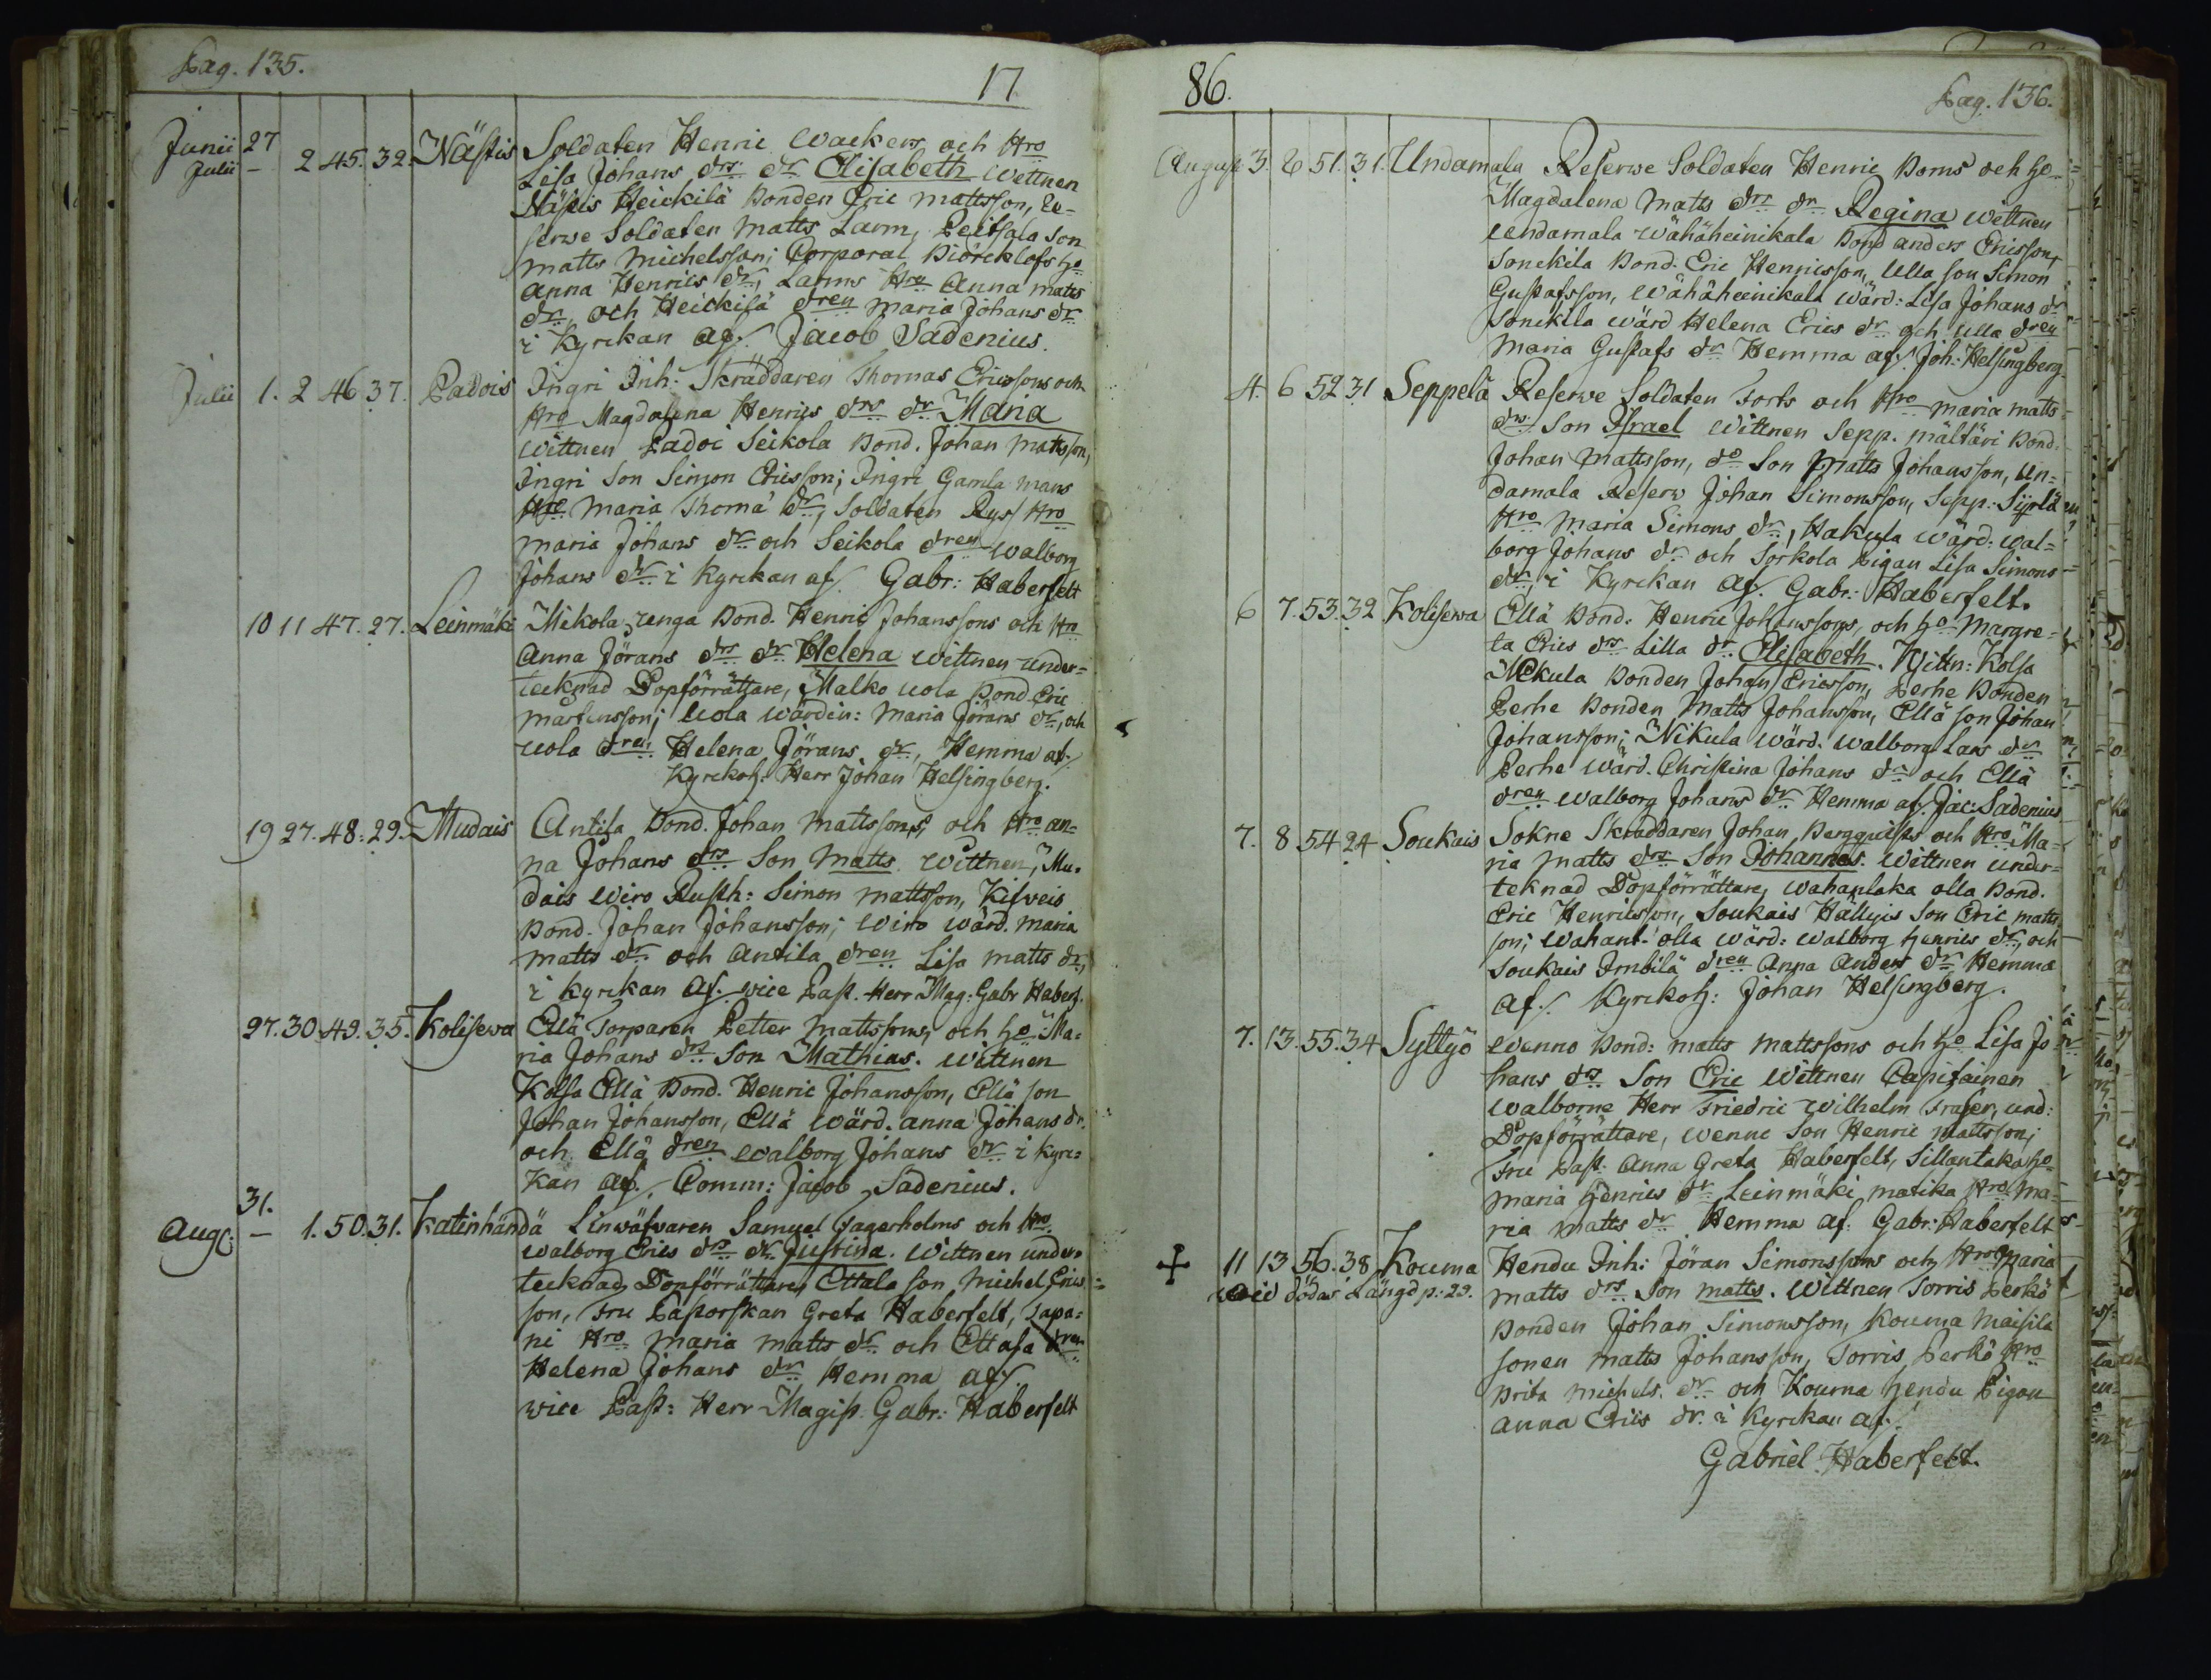 Pag. 135.
17
Junii 27
Julii – 2 45. 32. Nästis Soldaten Henric Wackers och Hro
Lisa Johans drs dr Elisabeth Wettnen
Nästis Heickilä Bonden Eric Mattsson, Re=
serwe Soldaten Matts Lam, Peitsala Son
Matts Michelsson; Corporal Biörcklofs ho
Anna Henrics dr, Lamms Hro Anna Matts
dr, och Heickilä dren Maria Johans dr
i Kyrckan af/. Jacob Sadenius.
Julii 1. 2 46 37. Padois Ingri Inh: Skräddaren Thomas Ericssons och
Hro Magdalena Henrics drs dr Maria
Wittnen Padoi Seikola Bond. Johan Mattsson,
Ingri Son Simon Ericsson; Ingri Gamla mans
Hro Maria Thomæ dr, Soldaten Rys Hro
Maria Johans dr och Seikola dren Walborg
Johans dr i Kyrckan af/. Gabr: Haberfelt
10 11 47. 27. Leinmäki Mikola, renga Bond. Henric Johanssons och Hro
Anna Jörans drs dr Helena Wittnen under=
tecknad Dopförrättare, Malko uola Bond Eric
Martensson; Uola wärdin: Maria Jörans dr, och
uola dren Helena Jörans dr, Hemma af/.
Kyrckoh. Herr Johan Helsingberg.
19 27. 48: 29. Mudais Antila Bond. Johan Mattssons, och Hro An=
na Johans drs Son Matts. Wittnen, Mu=
dais Wiro Rusth: Simon Mattsson, Kifveis
Bond. Johan Johansson; Wiro wärd. Maria
Matts dr och Antila dren Lisa Matts dr,
i Kyrckan Af. vice Past. Herr Mag: Gabr Haberf.
27. 30. 49. 35. Kolisewa Ellä Torparen Petter Mattssons, och ho Ma=
ria Johans drs Son Mathias. Wittnen
Kolsa Ellä Bond. Henric Johansson, Ellä son
Johan Johansson, Ellä Wärd. Anna Johans dr.
och Ellä dren Walborg Johans dr i Kyrc=
kan af/. Comm: Jacob Sadenius.
31.
Aug: – 1. 50. 31. Katinhändä Linwäfvaren Samuel Fagerholms och Hro
Walborg Erics drs dr. Justina. Wittnen under=
tecknad Dopförrättare, Ettala son Michel Erics=
son, Fru Pastorskan Greta Haberfelt, Tapa=
ni Hro Maria Matts dr och Ettala dren
Helena Johans dr Hemma af/.
vice Past: Herr Magist. Gabr: Haberfelt
86.
Pag. 136.
August 3. 6 51. 31. Undamala Reserwe Soldaten Henric Boms och ho
Magdalena Matts drs dr Regina Wittnen
Undamala Wähäheinikala Bond Anders Ericsson,
Sonckila Bond. Eric Henricsson, Ulla son Simon
Gustafsson, Wähäheinikala Wärd: Lisa Johans dr
Sonckila wärd Helena Erics dr och Ulla dren
Maria Gustafs dr Hemma af/. Joh: Helsingberg.
4. 6 52 31 Seppelä Reserve Soldaten Forts och Hro Maria Matts
drs Son Israel Wittnen Sepp. mältäri Bond.
Johan Mattsson, do Son Matts Johansson, Un=
damala Reserv Johan Simonsson, Sepp. Syrlä
Hro Maria Simons dr, Hakula Wärd. Wal=
borg Johans dr och Sorkola Pigan Lisa Simons
dr, i Kyrckan Af. Gabr: Haberfelt.
6 7. 53. 32 Kolisewa Ellä Bond. Henric Johanssons, och ho Margre=
ta Erics drs Lilla dr Elisabeth. Wittn: Kolsa
Nikula Bonden Johan Ericsson, Perhe Bonden
Perhe Bonden Matts Johansson, Ellä son Johan
Johansson; Nikula wärd. Walborg Lars dr
Perhe wärd. Christina Johans dr och Ellä
dren Walborg Johans dr Hemma af/. Jac: Sadenius
7. 8 54 24 Soukais Sokne Skräddaren Johan Bergquists och Hro Ma=
ria Matts drs Son Johannes. Wittnen under=
teknad Dopförrättare, Wahantaka olla Bond.
Eric Henricsson, Soukais Hällyis Son Eric Matts
son; Wahant. olla Wärd: Walborg Henrics dr, och
Soukais Imbilä dren Anna Anders dr Hemma
af./. Kyrckoh: Johan Helsingberg.
7. 13. 55. 34 Syttyö Wenno Bond: Matts Mattssons och ho Lisa Jo
hans drs Son Eric Wittnen Capitainen
Walborne Herr Friedric Wilhelm Fraser, und:
Dopförrättare, Wenni Son Henric Mattsson;
Fru Past: Anna Greta Haberfelt, Sillantaka ho
Maria Henrics dr Leinmäki matika Hro Ma=
ria Matts dr Hemma Af. Gabr: Haberfelt
11 13 56. 38 Kouma Hendu Inh: Jöran Simonssons och Hro Maria
vid dödas Längd p: 29. Matts drs Son Matts. Wittnen Torris Perkö
Bonden Johan Simonsson, Kouma Maisila
sonen Matts Johansson, Torris Perkö Hro
Brita Michels. dr och Kouma Hendu Pigan
Anna Erics dr. i Kyrckan af./.
Gabriel Haberfelt.